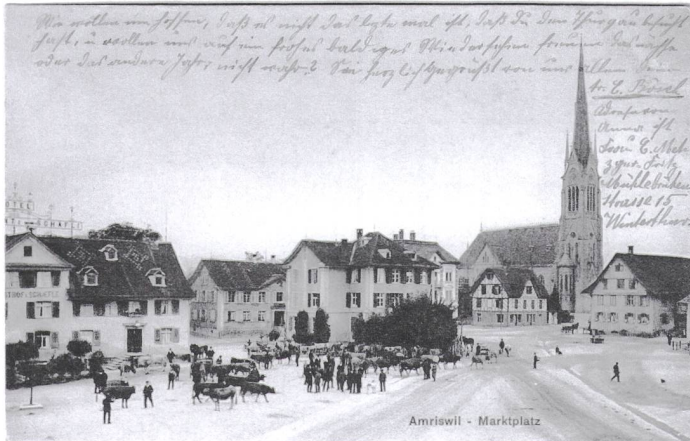 Wir wollen nun hoffen, daß es nicht das letzte mal ist, daß Du den Thurgau besucht
hast, u. wollen uns auf ein frohes baldiges Wiedersehen freuen das nächste
oder das andere Jahr, nicht wahr? Sei herzlich gegrüßt von uns allen
Adresse von
Anna ist
Frau E.
Mühlebrücken
strasse 15
Winterthur
Amriswil - Marktplatz